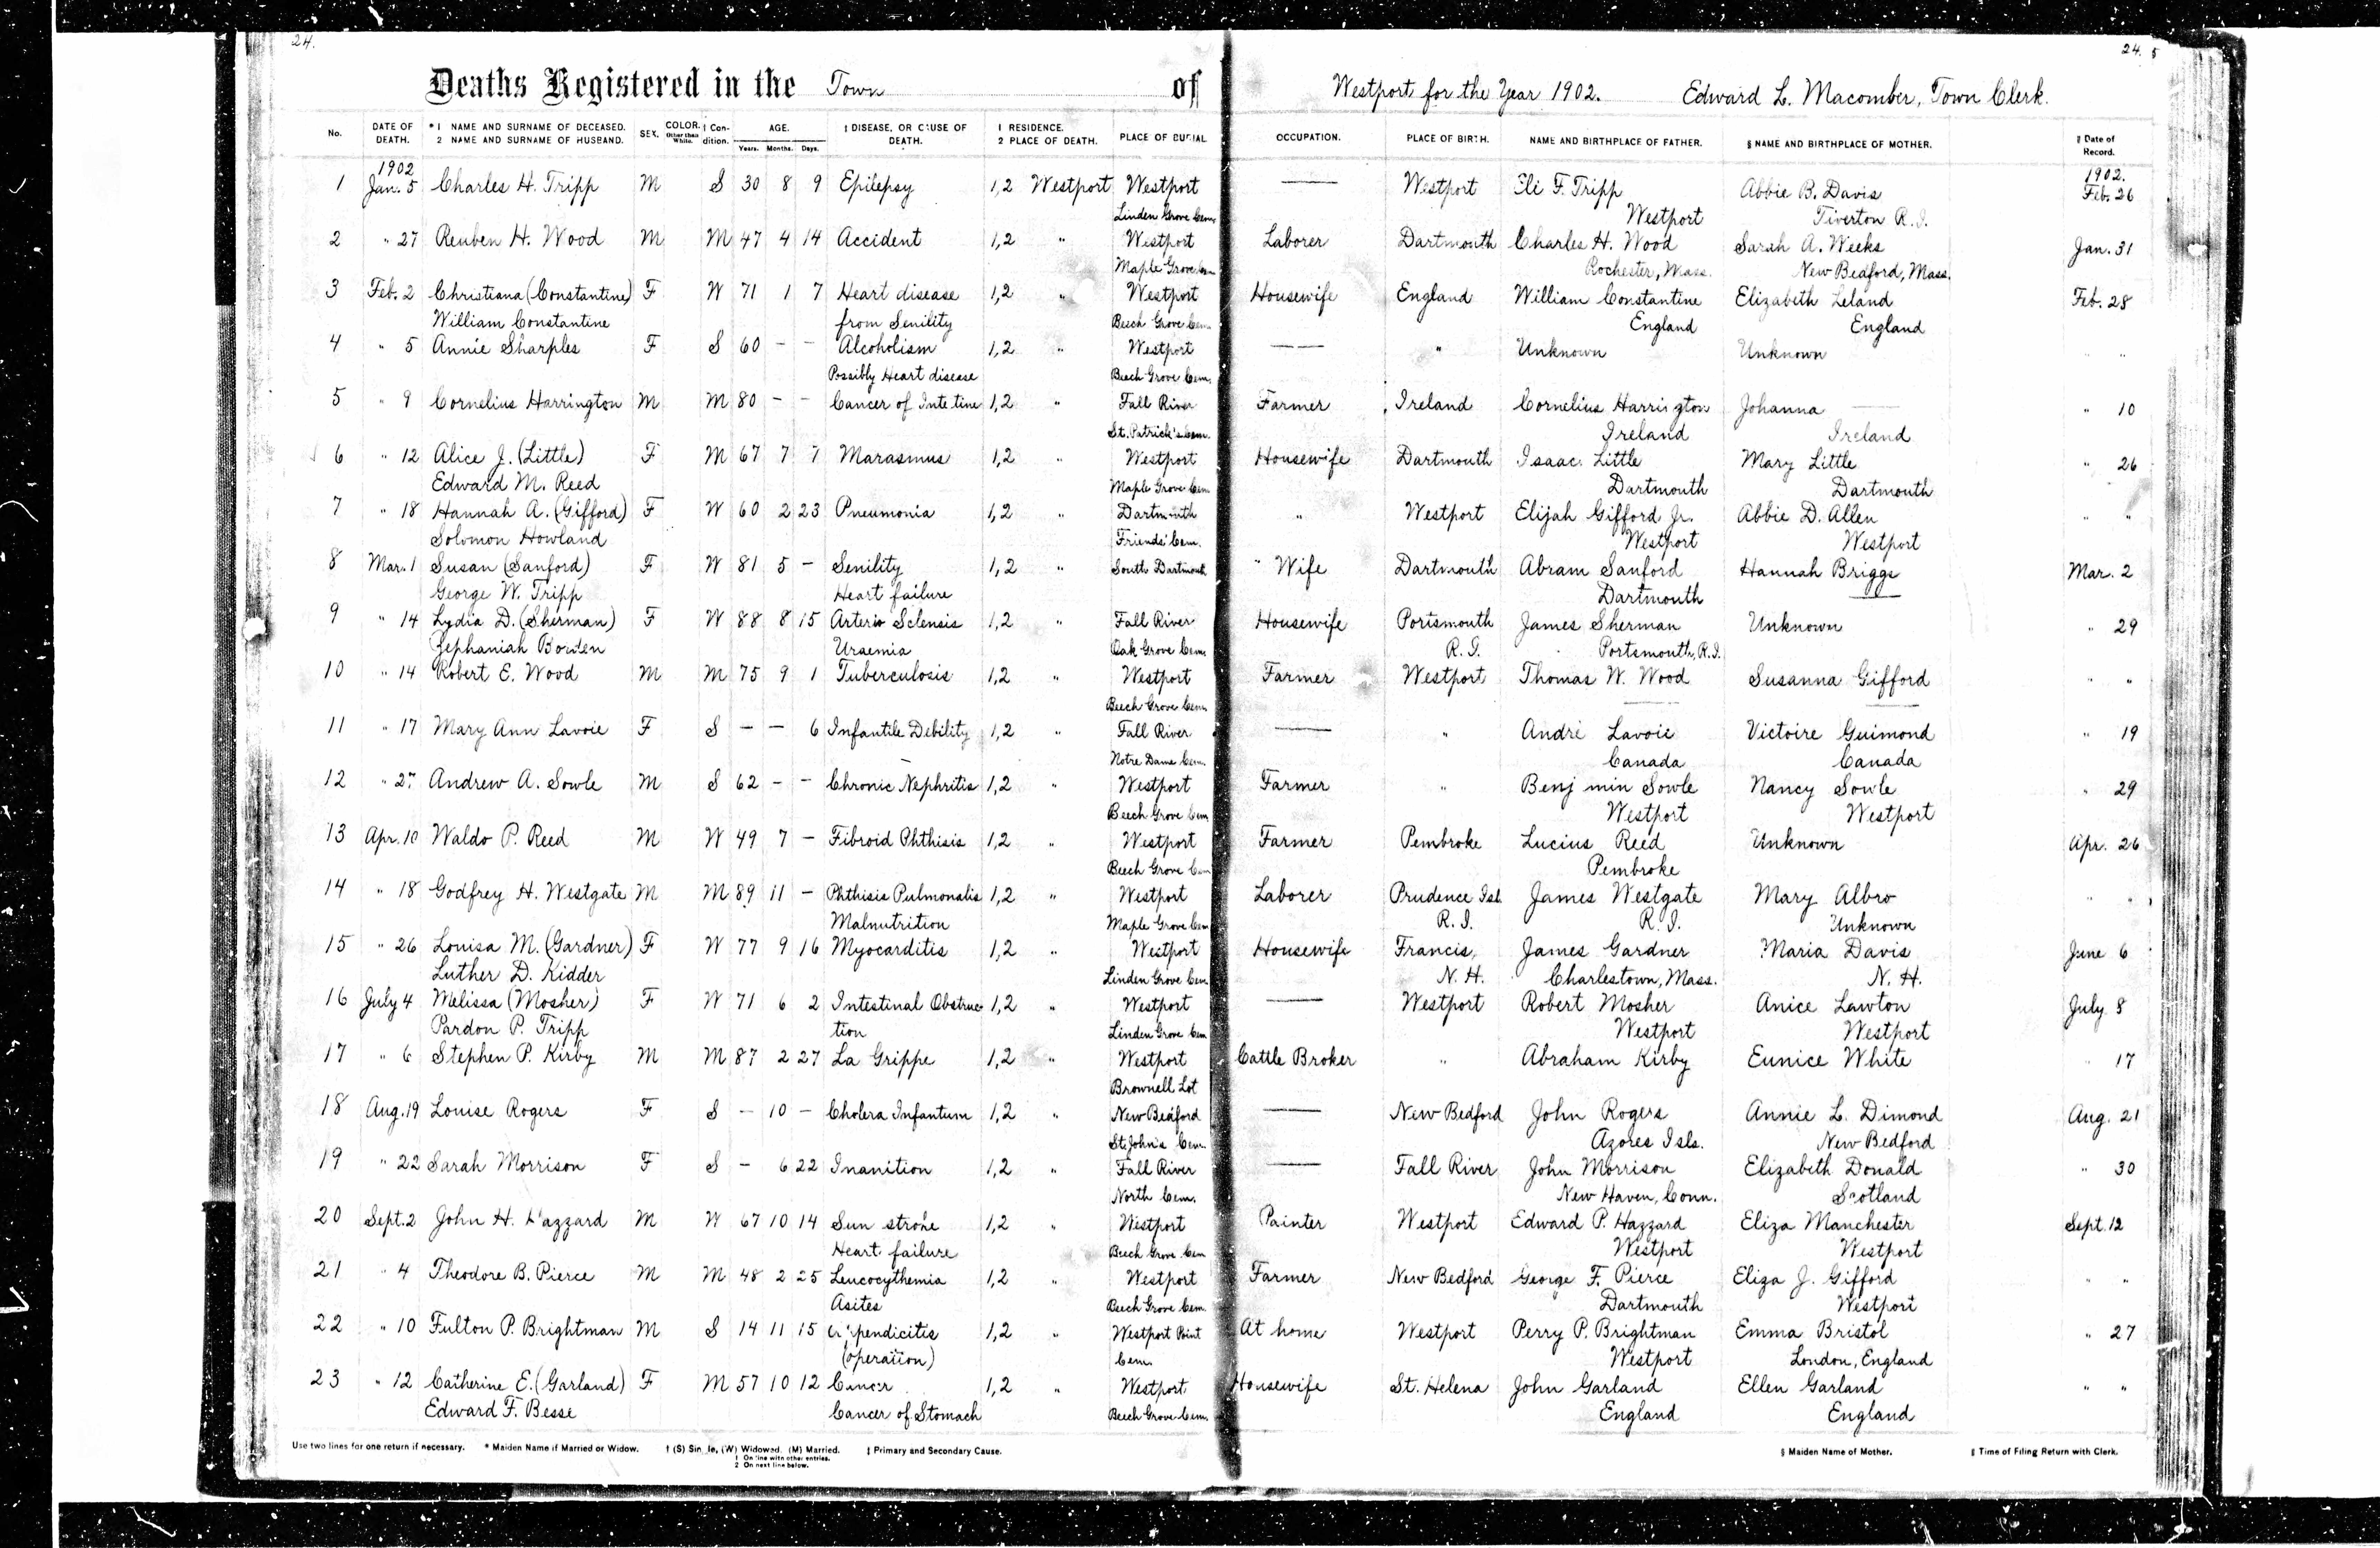 24.
24. 5
Deaths Registered in the Town of Westport for the Year 1902. Edward L. Macomber, Town Clerk.
No. DATE OF DEATH. *1 NAME AND SURNAME OF DECEASED. 2 NAME AND SURNAME OF HUSBAND. SEX. COLOR. Other than White. † Condition. AGE. Years. Months. Days. ‡ DISEASE, OR CAUSE OF DEATH. 1 RESIDENCE. 2 PLACE OF DEATH. PLACE OF BURIAL OCCUPATION. PLACE OF BIRTH. NAME AND BIRTHPLACE OF FATHER. § NAME AND BIRTHPLACE OF MOTHER. ‖ Date of Record.
1902 1902.
1 Jan. 5 Charles H. Tripp M S 30 8 9 Epilepsy 1,2 Westport Westport —— Westport Eli F. Tripp Abbie B. Davis Feb. 26
Linden Grove Cem. Westport Tiverton R.I.
2 " 27 Reuben H. Wood M M 47 4 14 Accident 1,2 " Westport Laborer Dartmouth Charles H. Wood Sarah A. Weeks Jan. 31
Maple Grove Cem. Rochester, Mass. New Bedford, Mass.
3 Feb. 2 Christiana (Constantine) F W 71 1 7 Heart disease 1,2 " Westport Housewife England William Constantine Elizabeth Leland Feb. 28
William Constantine from Senility Beech Grove Cem. England England
4 " 5 Annie Sharples F S 60 - - Alcoholism 1,2 " Westport —— " Unknown Unknown " "
Possibly Heart disease Beech Grove Cem.
5 " 9 Cornelius Harrington M M 80 - - Cancer of Intestine 1,2 " Fall River Farmer Ireland Cornelius Harrington Johanna —— " 10
St. Patrick's Cem. Ireland Ireland
6 " 12 Alice J. (Little) F M 67 7 7 Marasmus 1,2 " Westport Housewife Dartmouth Isaac Little Mary Little " 26
Edward M. Reed Maple Grove Cem. Dartmouth Dartmouth
7 " 18 Hannah A. (Gifford) F W 60 2 23 Pneumonia 1,2 " Dartmouth " Westport Elijah Gifford Jr. Abbie D. Allen " "
Solomon Howland Friends' Cem. Westport Westport
8 Mar. 1 Susan (Sanford) F W 81 5 - Senility 1,2 " South Dartmouth " Wife Dartmouth Abram Sanford Hannah Briggs Mar. 2
George W. Tripp Heart failure Dartmouth ——
9 " 14 Lydia D. (Sherman) F W 88 8 15 Arterio Sclensis 1,2 " Fall River Housewife Portsmouth James Sherman Unknown " 29
Zephaniah Borden Uraemia Oak Grove Cem. R.I. Portsmouth, R.I.
10 " 14 Robert E. Wood M M 75 9 1 Tuberculosis 1,2 " Westport Farmer Westport Thomas W. Wood Susanna Gifford " "
Beech Grove Cem. —— ——
11 " 17 Mary Ann Lavoie F S - - 6 Infantile Debility 1,2 " Fall River —— " André Lavoie Victoire Guimond " 19
Notre Dame Cem. Canada Canada
12 " 27 Andrew A. Sowle M S 62 - - Chronic Nephritis 1,2 " Westport Farmer " Benjamin Sowle Nancy Sowle " 29
Beech Grove Cem Westport Westport
13 Apr. 10 Waldo P. Reed M W 49 7 - Fibroid Phthisis 1,2 " Westport Farmer Pembroke Lucius Reed Unknown Apr. 26
Beech Grove Cem Pembroke
14 " 18 Godfrey H. Westgate M M 89 11 - Phthisis Pulmonalis 1,2 " Westport Laborer Prudence Isl. James Westgate Mary Albro " "
Malnutrition Maple Grove Cem R.I. R.I. Unknown
15 " 26 Louisa M. (Gardner) F W 77 9 16 Myocarditis 1,2 " Westport Housewife Francis, James Gardner Maria Davis June 6
Luther D. Kidder Linden Grove Cem. N.H. Charlestown, Mass. N.H.
16 July 4 Melissa (Mosher) F W 71 6 2 Intestinal Obstruc 1,2 " Westport —— Westport Robert Mosher Anice Lawton July 8
Pardon P. Tripp tion Linden Grove Cem Westport Westport
17 " 6 Stephen P. Kirby M M 87 2 27 La Grippe 1,2 " Westport Cattle Broker " Abraham Kirby Eunice White " 17
Brownell Lot
18 Aug. 19 Louise Rogers F S - 10 - Cholera Infantum 1,2 " New Bedford —— New Bedford John Rogers Annie L. Dimond Aug. 21
St. John's Cem. Azores Isls. New Bedford
19 " 22 Sarah Morrison F S - 6 22 Inanition 1,2 " Fall River —— Fall River John Morrison Elizabeth Donald " 30
North Cem. New Haven, Conn. Scotland
20 Sept. 2 John H. Hazzard M W 67 10 14 Sun stroke 1,2 " Westport Painter Westport Edward P. Hazzard Eliza Manchester Sept. 12
Heart failure Beech Grove Cem Westport Westport
21 " 4 Theodore B. Pierce M M 48 2 25 Leucocythemia 1,2 " Westport Farmer New Bedford George F. Pierce Eliza J. Gifford " "
Asites Beech Grove Cem. Dartmouth Westport
22 " 10 Fulton P. Brightman M S 14 11 15 Appendicitis 1,2 " Westport Point At home Westport Perry P. Brightman Emma Bristol " 27
(operation) Cem. Westport London, England
23 " 12 Catherine E. (Garland) F M 57 10 12 Cancer 1,2 " Westport Housewife St. Helena John Garland Ellen Garland " "
Edward F. Besse Cancer of Stomach Beech Grove Cem. England England
Use two lines for one return if necessary. * Maiden Name if Married or Widow. † (S) Single, (W) Widowed. (M) Married. ‡ Primary and Secondary Cause. § Maiden Name of Mother. ‖ Time of Filing Return with Clerk.
1 On line with other entries.
2 On next line below.